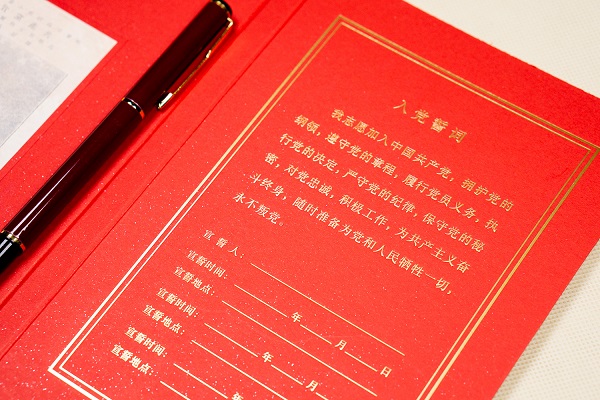 入党誓词
我志愿加入中国共产党，拥护党的
纲领，遵守党的章程，履行党员义务，执
行党的决定，严守党的纪律，保守党的秘
密，对党忠诚，积极工作，为共产主义奋
斗终身，随时准备为党和人民牺牲一切，
永不叛党。
宣誓人：
宣誓时间： 年 月 日
宣誓地点：
宣誓时间： 年 月
宣誓地点：
宣誓时间： 年
宣誓地点：